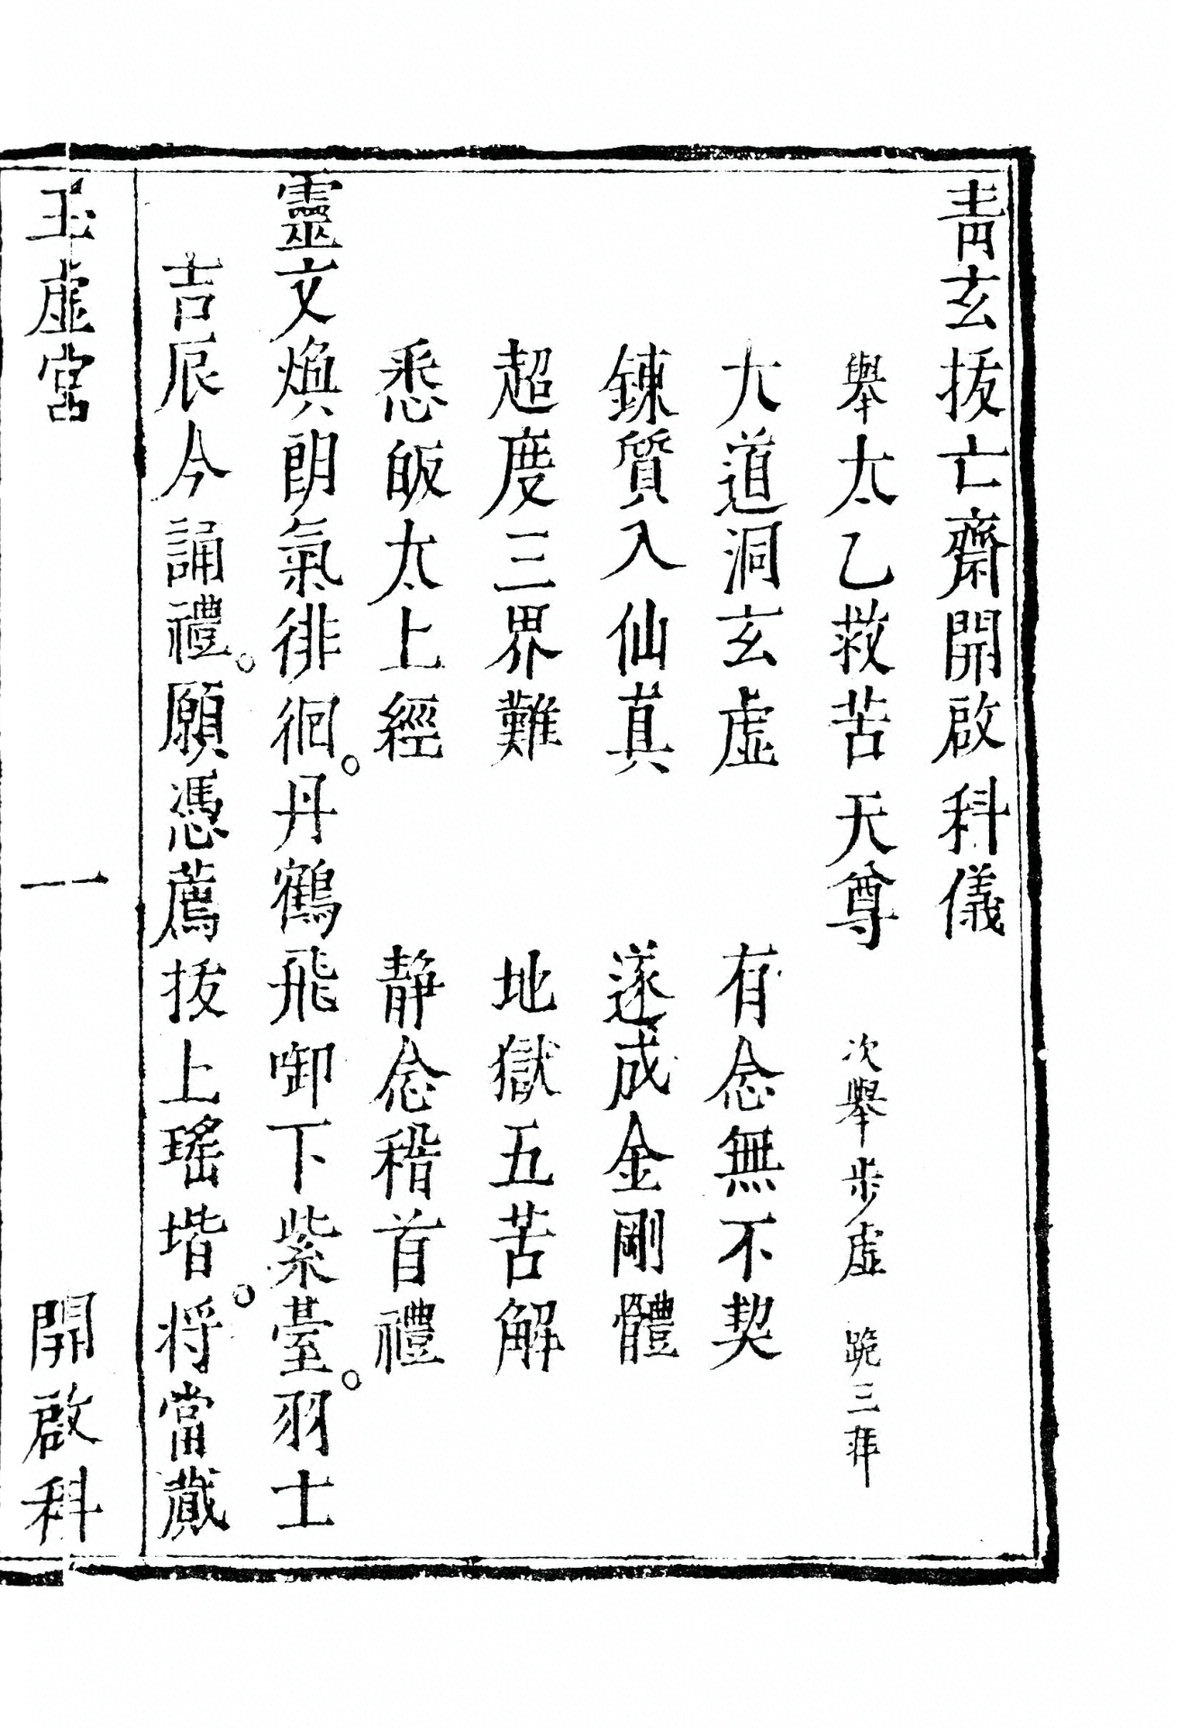 青玄拔亡齋開啟科儀
舉太乙救苦天尊 次舉步虛 跪三拜
大道洞玄虛 有念無不契
鍊質入仙真 遂成金剛體
超度三界難 地獄五苦解
悉皈太上經 靜念稽首禮
靈文煥朗氣徘徊。丹鶴飛啣下紫臺。羽士
吉辰今誦禮。願憑薦拔上瑤堦。將當蕆
玉虛宮 一 開啟科